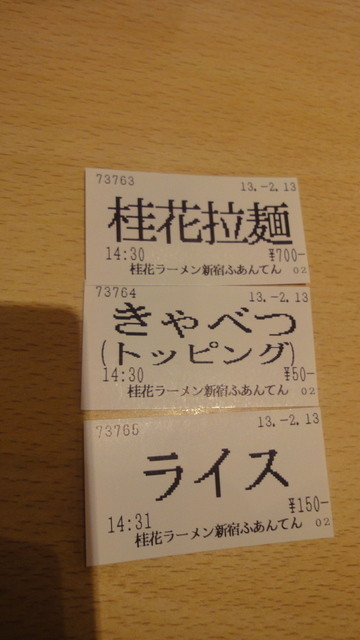 73763 13.-2.13
桂花拉麺
14:30 ¥700-
桂花ラーメン新宿ふあんてん 02
73764 13.-2.13
きゃべつ
(トッピング)
14:30 ¥50-
桂花ラーメン新宿ふあんてん 02
73765 13.-2.13
ライス
14:31 ¥150-
桂花ラーメン新宿ふあんてん 02